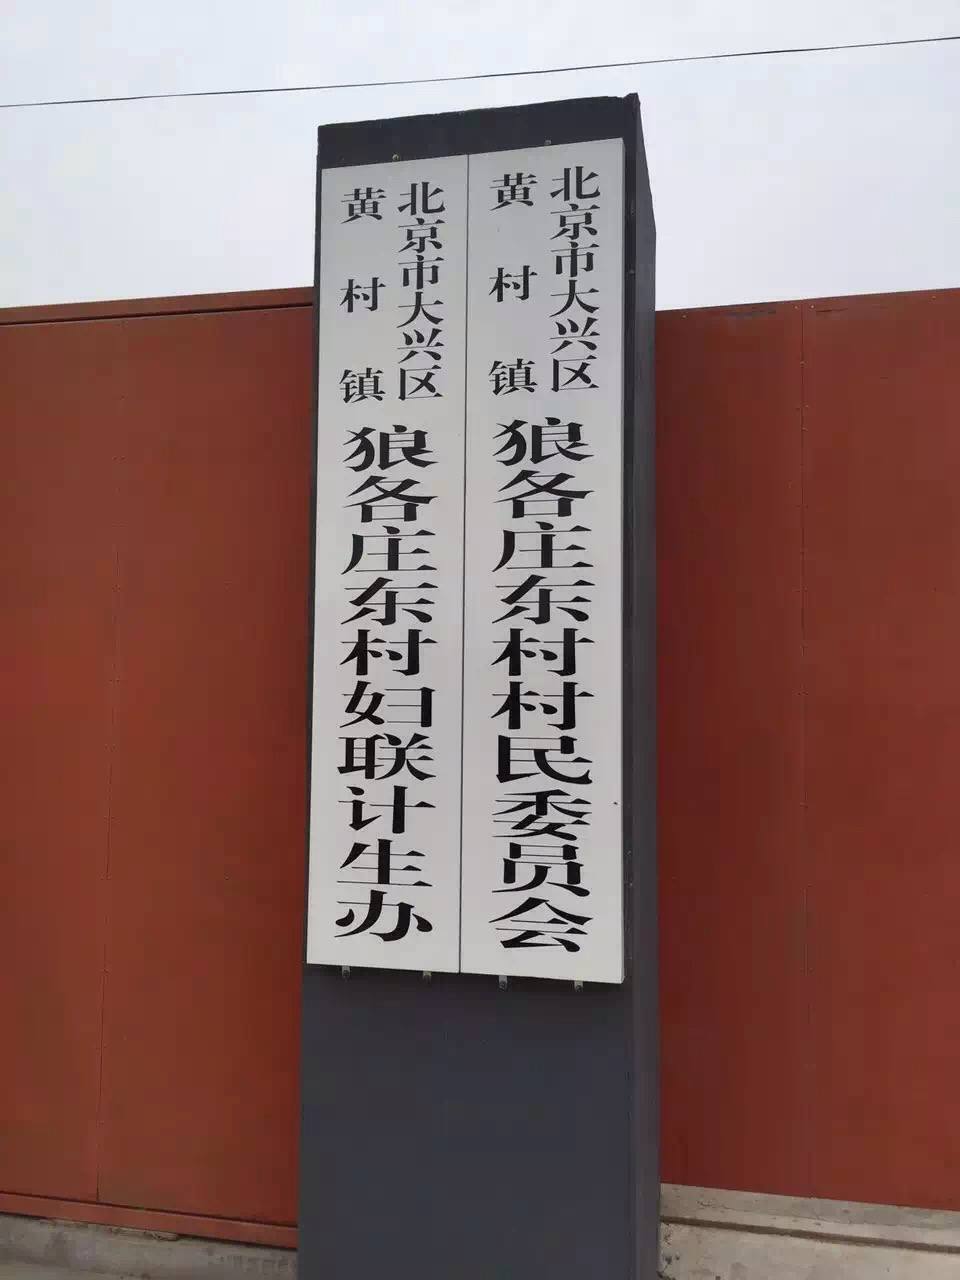 北京市大兴区
黄村镇
狼各庄东村村民委员会
北京市大兴区
黄村镇
狼各庄东村妇联计生办